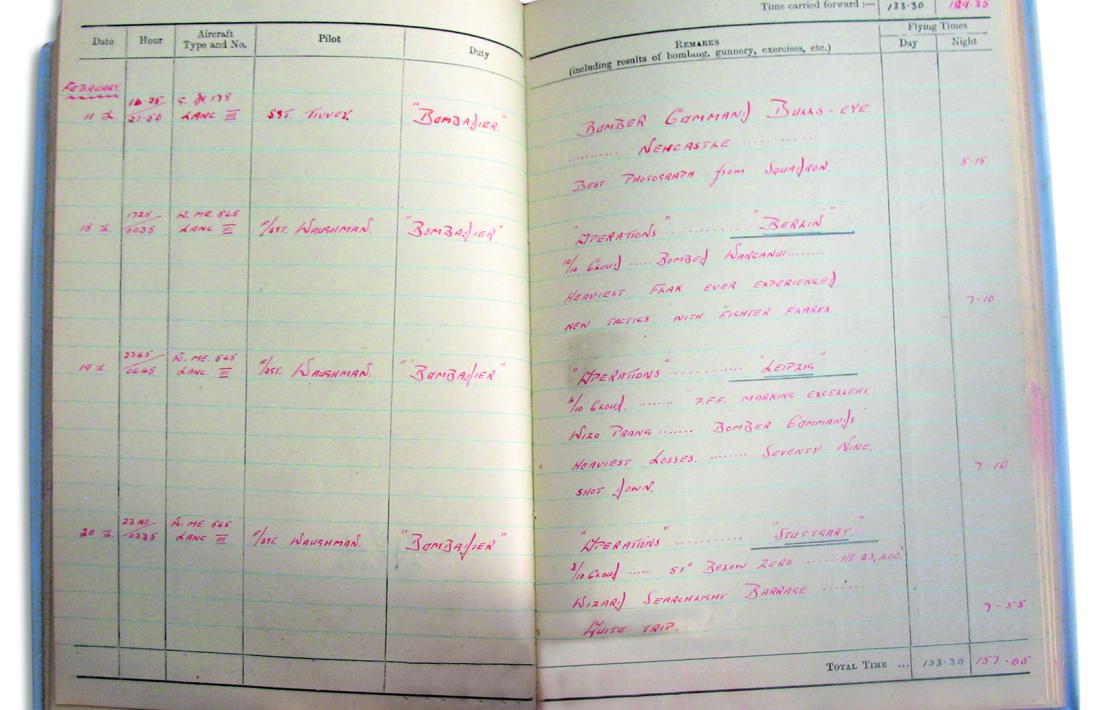 Time carried forward :— 133·30
Date Hour Aircraft Type and No. Pilot Duty
REMARKS
(including results of bombing, gunnery, exercises, etc.)
Flying Times
Day Night
FEBRUARY.
11 21·50 LANC III SGT. TINNEY. "BOMBADIER."
BOMBER COMMAND BULLS-EYE
......... NEWCASTLE .........
BEST PHOTOGRAPH from SQUADRON.
5·15
15 1725/0035 W. ME. 565 LANC III F/SGT. WAUGHMAN. "BOMBADIER"
"OPERATIONS" ......... "BERLIN"
10/10 CLOUD ...... BOMBED WANGANUI ........
HEAVIEST FLAK EVER EXPERIENCED
NEW TACTICS WITH FIGHTER FLARES.
7·10
19 W. ME. 565 LANC III F/SGT. WAUGHMAN. "BOMBADIER"
"OPERATIONS" ......... "LEIPZIG"
/10 CLOUD. ........ P.F.F. MARKING EXCELLENT.
WIZO PRANG ....... BOMBER COMMANDS
HEAVIEST LOSSES. ........ SEVENTY NINE.
SHOT DOWN.
7·10
20 W. ME. 565 LANC III F/SGT. WAUGHMAN. "BOMBADIER"
"OPERATIONS" .......... "STUTTGART."
3/10 CLOUD ...... 51° BELOW ZERO
WIZARD SEARCHLIGHT BARRAGE ......
QUITE TRIP.
7·55
TOTAL TIME ... 133·30 157·05